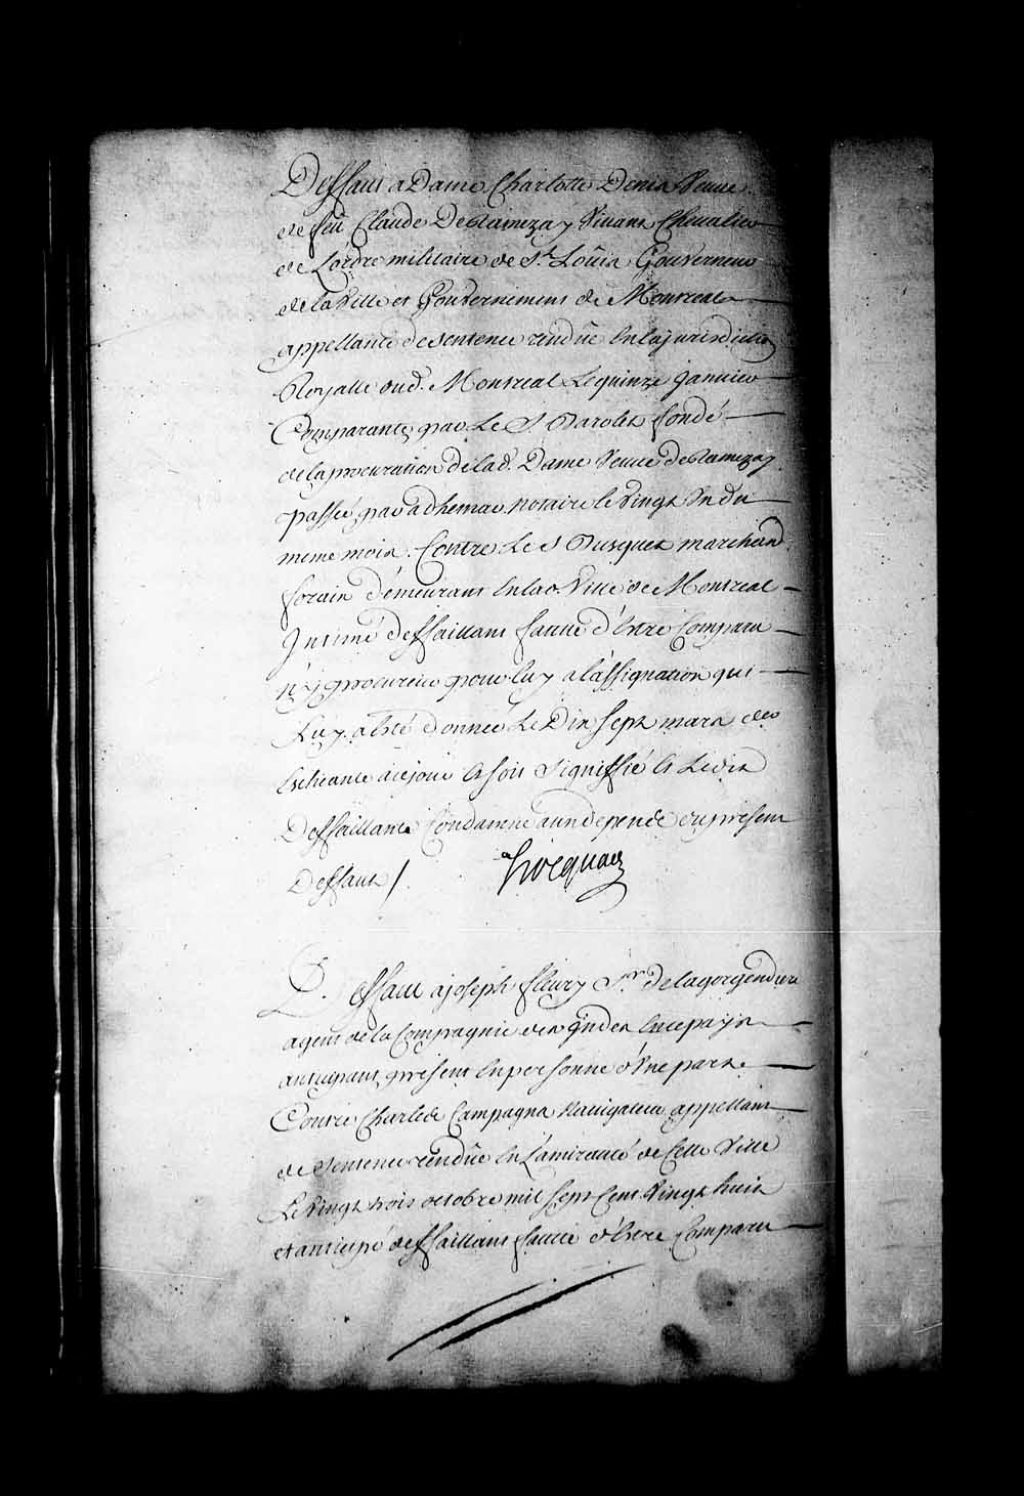 Deffaut a Dame Charlotte Denis Veuve
de feu Claude De Ramezay Vivant Chevalier
de L'ordre militaire de St. Loüis Gouverneur
de la Ville et Gouvernement de Montreal
appellante de sentence rendüe en la jurisdiction
Royalle dud. Montreal Le quinze Janvier
Comparante par Le S. fondé
de la procuration de lad. Dame Veuve de Ramezay
passée par adhemar notaire le vingt un du
meme mois. Contre Le S marchand
forain demeurant en lad. Ville de Montreal
Intimé deffaillant faute d'estre Comparu
ny procureur pour luy a l'assignation qui
Luy a esté donnée Le Dix sept mars der
Escheante a ce jour et soit signiffié et Ledit
Deffaillant Condamné aux depens du present
Deffaut /. hocquart
Deffaut a joseph fleury Sr. de la gorgendiere
agent de la Compagnie des Indes en ce pays
anticipant present en personne d'une part.
Contre Charles Campagna Navigateur appellant
de sentence rendüe en L'amirauté de Cette Ville
Le Vingt trois octobre mil sept Cent Vingt huit
et anticipé deffaillant faute d'estre Comparu